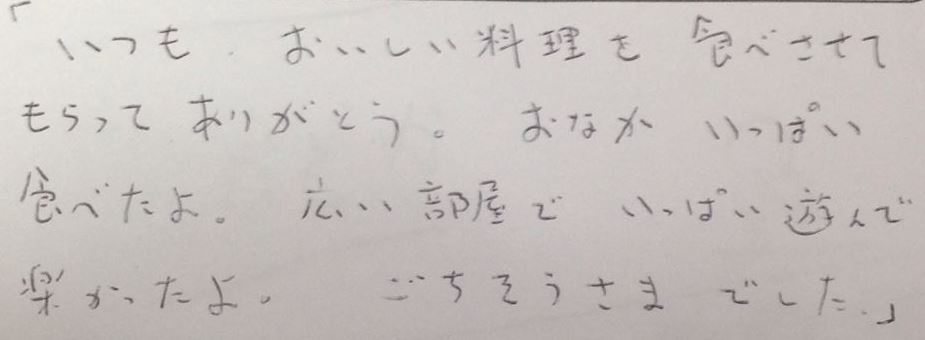 「いつも おいしい料理を 食べさせて
もらって ありがとう。 おなか いっぱい
食べたよ。 広い 部屋で いっぱい 遊んで
楽かったよ。 ごちそうさま でした.」